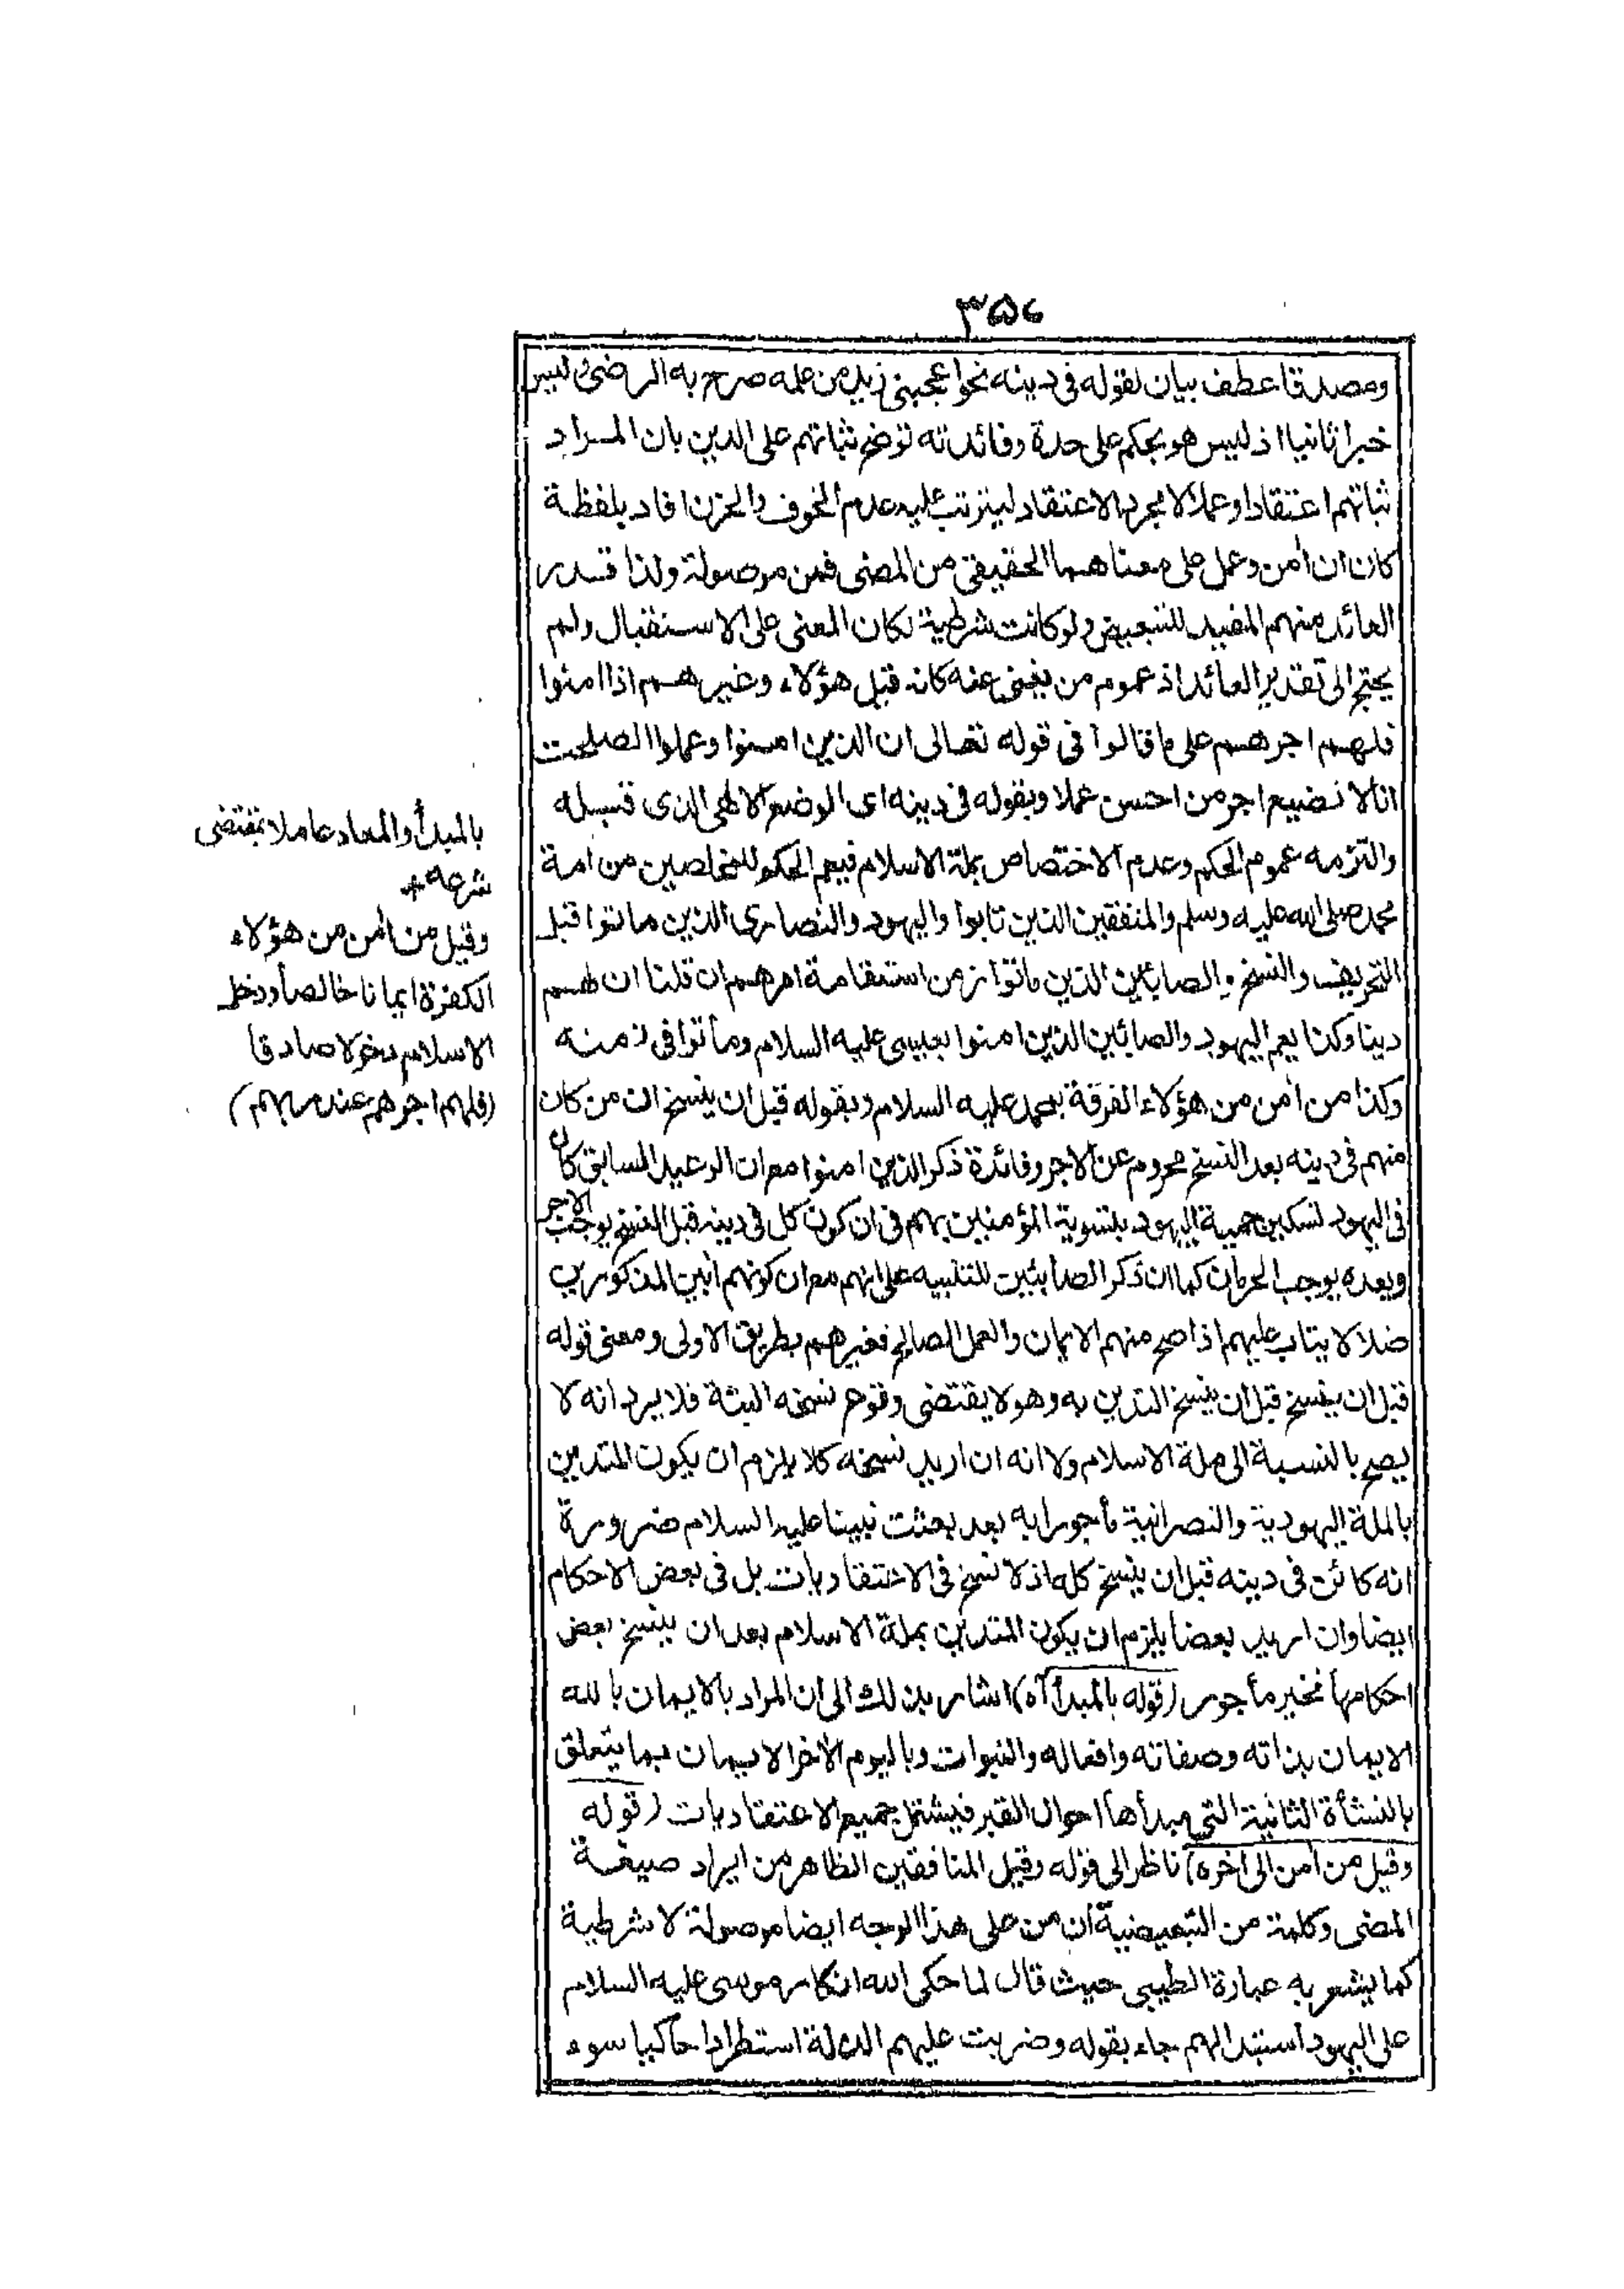 ٣٥٦
ومصدقا عطف بيان لقوله فى دينه نحو اعجبنى زيد من علمه صرح به الرضى ليس
خبرا ثانيا اذ ليس هو بحكم على حدة وفائدته توضح ثباتهم على الدين بان المراد
ثباتهم اعتقادا وعملا لا مجرد الاعتقاد ليترتب عليه عدم الخوف والحزن افاد بلفظة
كان ان أمن وعمل على معناهما الحقيقى من المضى فمن موصولة ولذا قدر
العائد منهم المفيد للتبعيض ولو كانت شرطية لكان المعنى على الاستقبال ولم
يحتج الى تقدير العائد اذ عموم من يغنى عنه كانه قيل هؤلاء وغيرهم اذا امنوا
فلهم اجرهم على ما قالوا فى قوله تعالى ان الذين امنوا وعملوا الصلحت
انا لا نضيع اجر من احسن عملا وبقوله فى دينه اى الوضع الالهى الذى قبله
والتزمه عموم الحكم وعدم الاختصاص بملة الاسلام فيعم الحكم للمخلصين من امة
محمد صلى الله عليه وسلم والمنفقين الذين تابوا واليهود والنصارى الذين ماتوا قبل
التحريف والنسخ والصابئين الذين ماتوا زمن استقامة امرهم ان قلنا ان لهم
دينا وكذا يعم اليهود والصابئين الذين امنوا بعيسى عليه السلام وماتوا فى زمنه
وكذا من أمن من هؤلاء الفرقة بمحمد عليه السلام وبقوله قبل ان ينسخ ان من كان
منهم فى دينه بعد النسخ محروم عن الاجر وفائدة ذكر الذين امنوا مع ان الوعيد السابق كان
فى اليهود لتسكين حمية اليهود بتسوية المؤمنين بهم فى ان كون كل فى دينه قبل النسخ يوجب الاجر
وبعده يوجب الحرمان كما ان ذكر الصابئين للتنبيه على انهم مع ان كونهم ابين المذكورين
ضلالا يتاب عليهم اذا صح منهم الايمان والعمل الصالح فغيرهم بطريق الاولى ومعنى قوله
قبل ان ينسخ قبل ان ينسخ التدين به وهو لا يقتضى وقوع نسخه البتة فلا يرد انه لا
يصح بالنسبة الى ملة الاسلام ولا انه ان اريد نسخه كلا يلزم ان يكون المتدين
بالملة اليهودية والنصرانية مأجورا به بعد بعثت نبينا عليه السلام ضرورة
انه كائن فى دينه قبل ان ينسخ كله اذ لا نسخ فى الاعتقاديات بل فى بعض الاحكام
ايضا وان اريد بعضا يلزم ان يكون المتدين بملة الاسلام بعد ان ينسخ بعض
احكامها غير مأجور (قوله بالمبدأ اه) اشار بذلك الى ان المراد بالايمان بالله
الايمان بذاته وصفاته وافعاله والنبوات وباليوم الأخر الايمان بما يتعلق
بالنشأة الثانية التى مبدأها احوال القبر فيشتمل جميع الاعتقاديات (قوله
وقيل من أمن الى أخره) ناظر الى قوله وقيل المنافقين الظاهر من ايراد صيغة
المضى وكلمة من التبعيضية ان من على هذا الوجه ايضا موصولة لا شرطية
كما يشعر به عبارة الطيبى حيث قال لما حكى الله انكار موسى عليه السلام
على اليهود استبدالهم جاء بقوله وضربت عليهم الذلة استطرادا حاكيا سوء
بالمبدأ والمعاد عاملا بمقتضى
شرعه+
وقيل من أمن من هؤلاء
الكفرة ايمانا خالصا ودخل
الاسلام دخولا صادقا
(فلهم اجرهم عند ربهم)